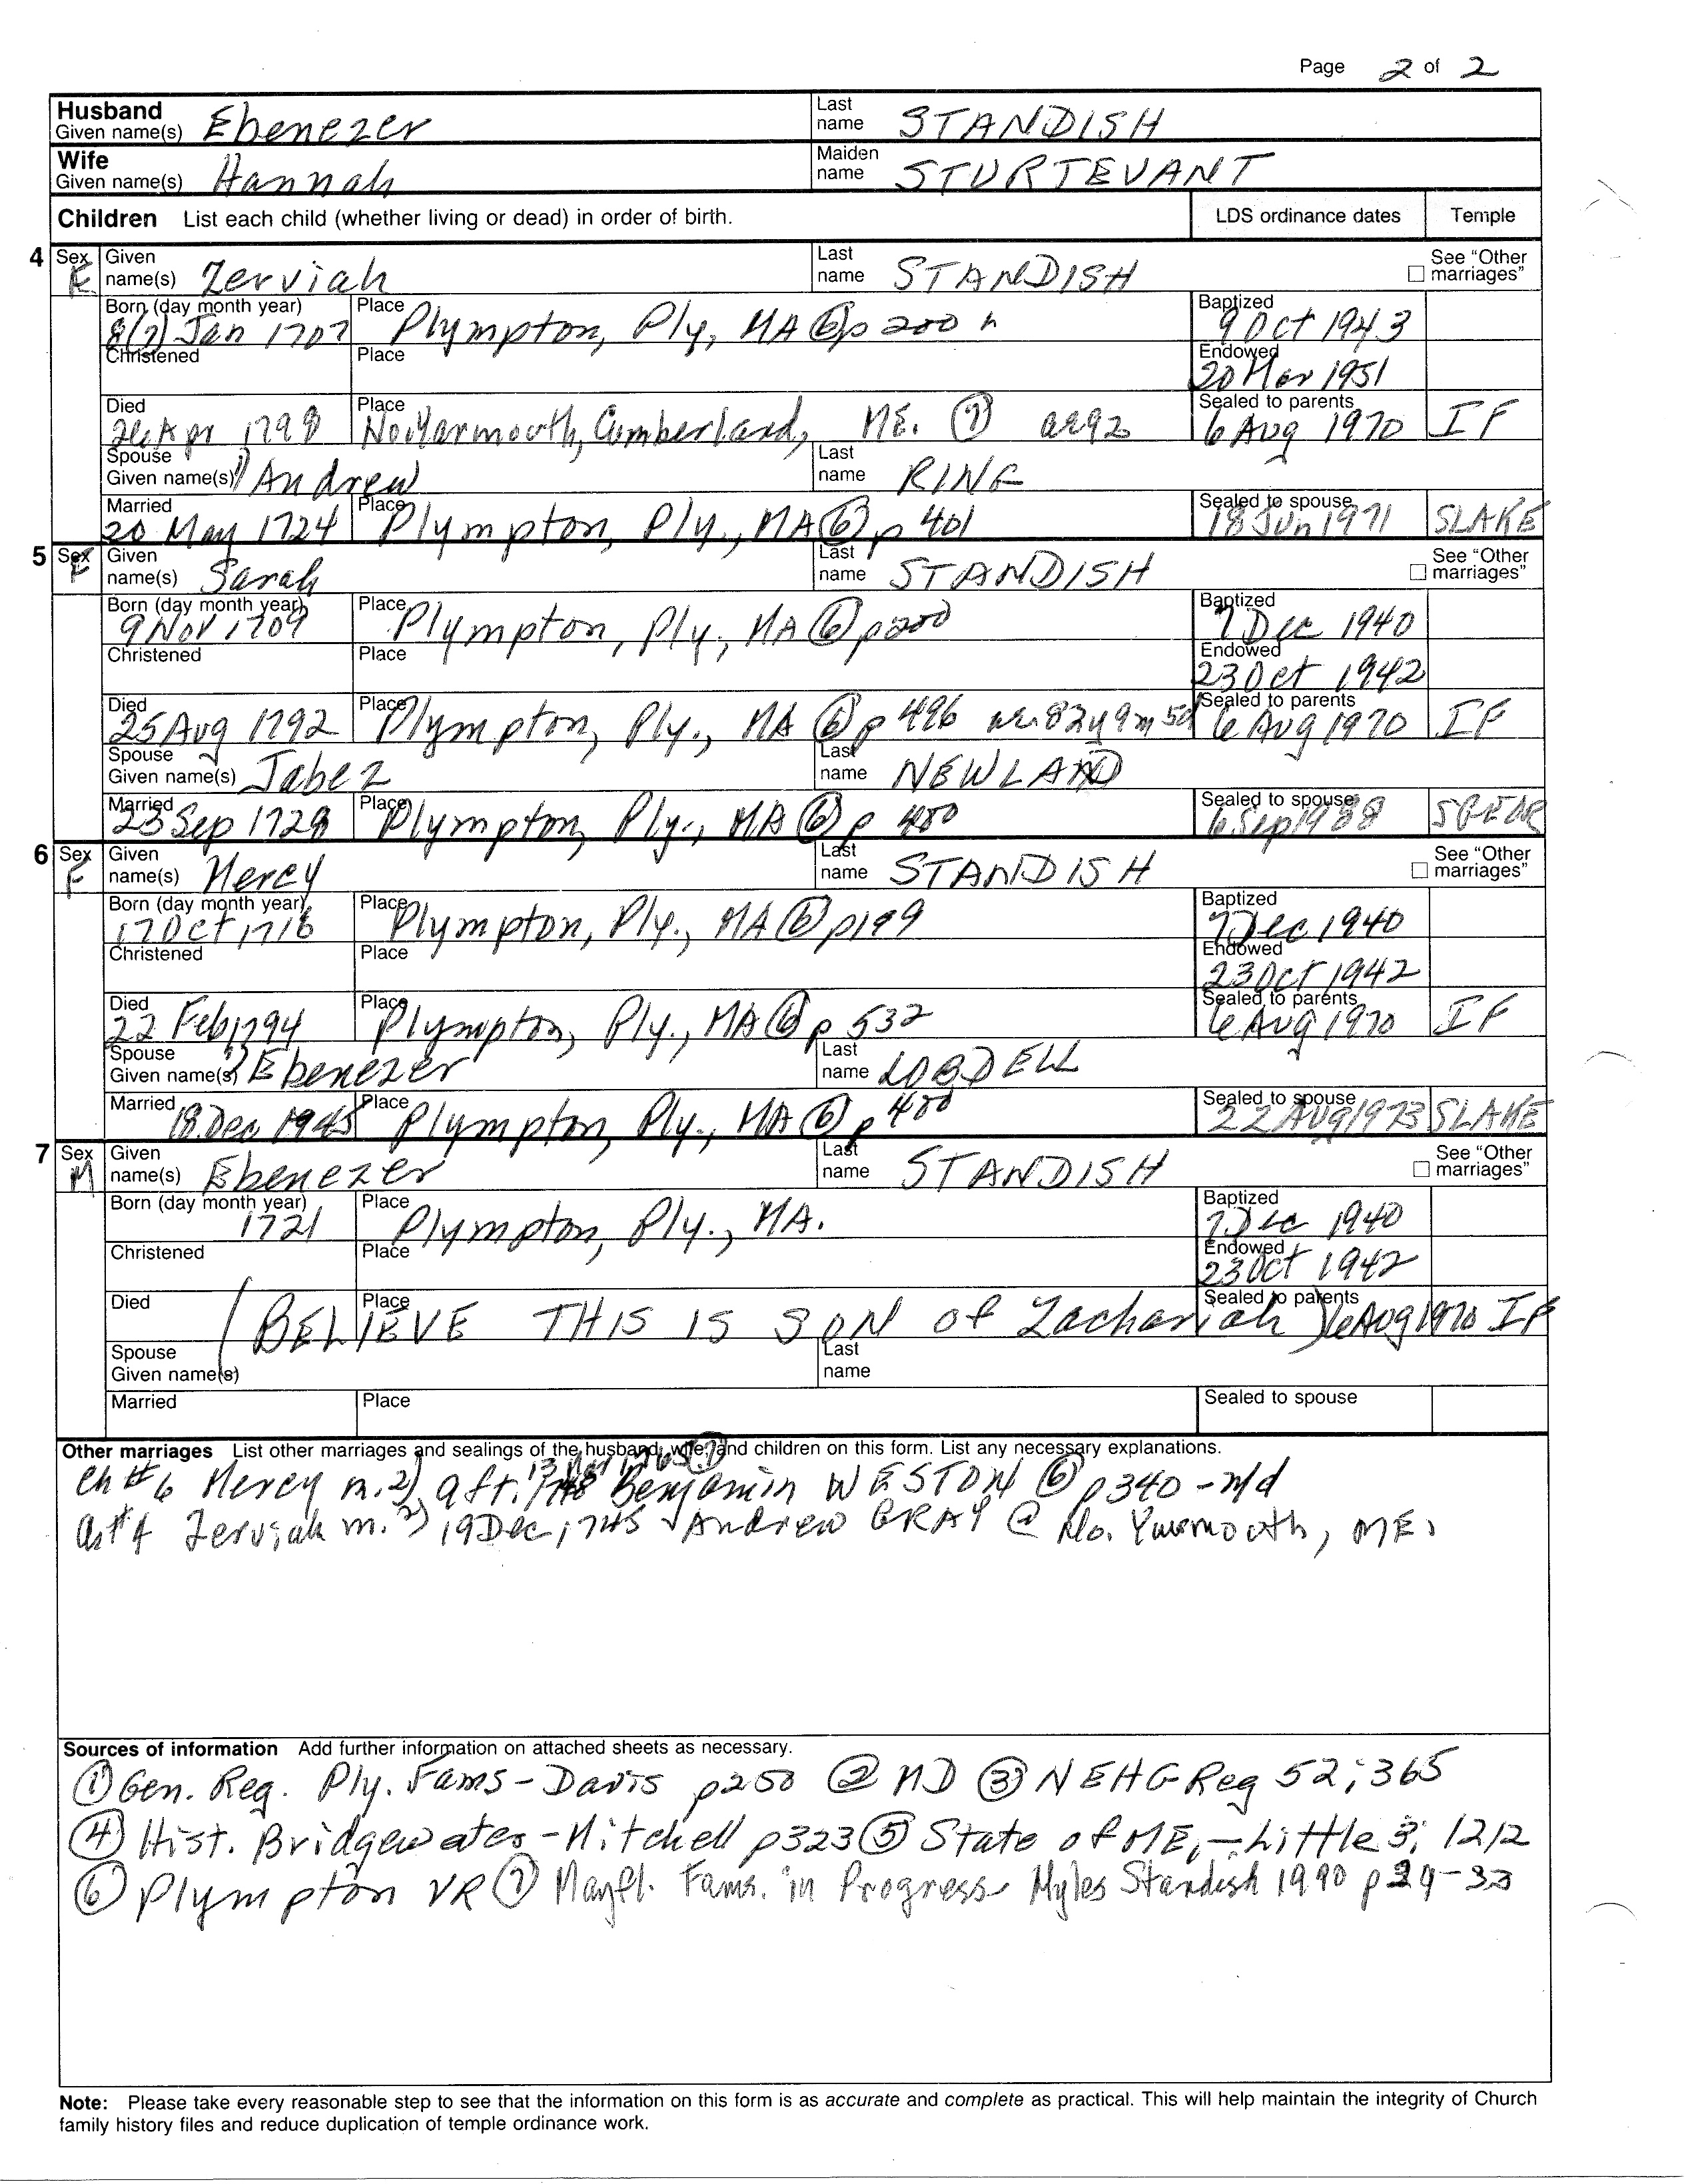 Page 2 of 2
Husband Given name(s) Ebenezer Last name STANDISH
Wife Given name(s) Hannah Maiden name STURTEVANT
Children List each child (whether living or dead) in order of birth. LDS ordinance dates Temple
4 Sex F Given name(s) Zerviah Last name STANDISH See "Other marriages"
Born (day month year) 8(7) Jan 1707 Place Plympton, Ply, MA ⑥p 200 Baptized 9 Oct 1943
Christened Place Endowed 20 Mar 1951
Died Apr 1798 Place No.Yarmouth, Cumberland, ME. ⑦ ae92 Sealed to parents 6 Aug 1970 IF
Spouse Given name(s) 1) Andrew Last name RING
Married 20 May 1724 Place Plympton, Ply., MA ⑥ p 401 Sealed to spouse 18 Jun 1971 SLAKE
5 Sex F Given name(s) Sarah Last name STANDISH See "Other marriages"
Born (day month year) 9 Nov 1709 Place Plympton, Ply, MA ⑥ p200 Baptized 7 Dec 1940
Christened Place Endowed 23 Oct 1942
Died 25 Aug 1792 Place Plympton, Ply., MA ⑥ p 496 ae. 82y 9m 5d Sealed to parents 6 Aug 1970 IF
Spouse Given name(s) Jabez Last name NEWLAND
Married 23 Sep 1728 Place Plympton, Ply., MA ⑥ p 400 Sealed to spouse 6 Sep 1988
6 Sex F Given name(s) Mercy Last name STANDISH See "Other marriages"
Born (day month year) 17 Oct 1716 Place Plympton, Ply., MA ⑥ p199 Baptized 7 Dec 1940
Christened Place Endowed 23 Oct 1942
Died 22 Feb 1794 Place Plympton, Ply., MA ⑥ p 532 Sealed to parents 6 Aug 1970 IF
Spouse Given name(s) 1) Ebenezer Last name LOBDELL
Married 18 Dec 1945 Place Plympton, Ply., MA ⑥ p 400 Sealed to spouse 22 AUG 1973 SLAKE
7 Sex M Given name(s) Ebenezer Last name STANDISH See "Other marriages"
Born (day month year) 1721 Place Plympton, Ply., MA. Baptized 7 Dec 1940
Christened Place Endowed 23 Oct 1942
Died Place (BELIEVE THIS IS SON of Zachariah) Sealed to parents 6 Aug 1970 IF
Spouse Given name(s) Last name
Married Place Sealed to spouse
Other marriages List other marriages and sealings of the husband, wife, and children on this form. List any necessary explanations.
Ch #6 Mercy m. 2) aft. Benjamin WESTON ⑥ p340 - n/d
#4 Zerviah m. 2) 19 Dec 1745 Andrew GRAY @ No. Yarmouth, ME.
Sources of information Add further information on attached sheets as necessary.
① Gen. Reg. Ply. Fams - Davis p250 ② MD ③ NEHG Reg 52; 365
④ Hist. Bridgewater - Mitchell p323 ⑤ State of ME, - Little 3; 1212
⑥ Plympton VR ⑦ Mayfl. Fams. in Progress Myles Standish 1990 p29-30
Note: Please take every reasonable step to see that the information on this form is as accurate and complete as practical. This will help maintain the integrity of Church
family history files and reduce duplication of temple ordinance work.